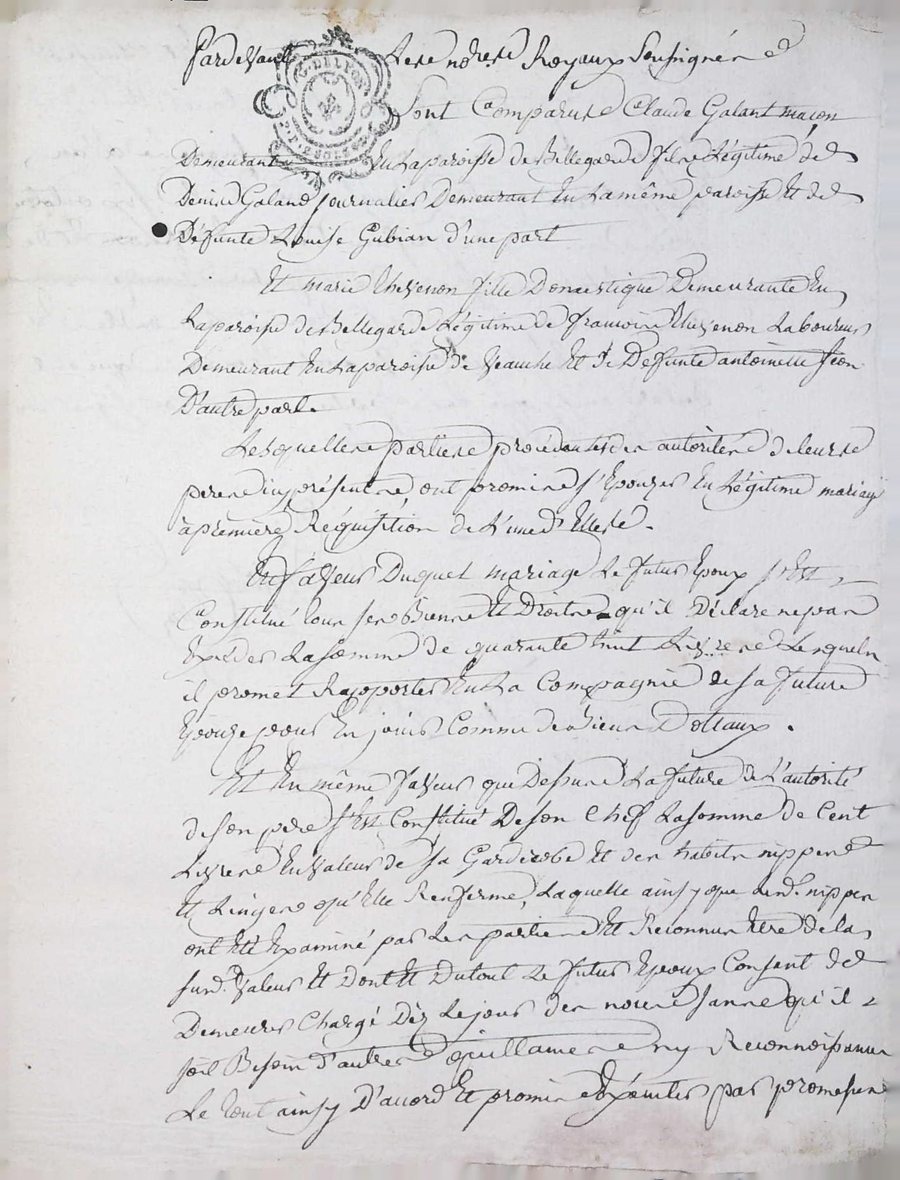 Pardevant Les no.res Royaux Soussignés
G. DE LYON
Sont Comparus Claude Galant maçon
Demeurant En La paroisse de Bellegarde fils Légitime de
Denis Galand journalier Demeurant En La même paroisse Et de
Défunte Louise Gubian d'une part
Et marie Thevenon fille Domestique Demeurante En
La paroisse de Bellegarde Légitime de francois Thevenon Laboureur
Demeurant En La paroisse de Veauche Et de Defunte antoinette
D'autre part.
Lesquelles parties procédantes des autorités de leurs
peres icy présents, ont promis s'Epouzer En Légitime mariage
a premiere Requisition de L'une d'Elles.
En faveur Duquel mariage Le futur Epoux s'Est
Constitué tous ses Biens Et Droits qu'il Déclare ne pas
Exceder La somme de quarante huit Livres Lesquels
il promet Rapporter En La Compagnie de sa future
Epouze pour En jouir Comme de Biens Dottaux.
Et En même faveur que Dessus La future de L'autorité
de son pere s'Est Constitué De son Chef La somme de Cent
Livres En Valeur de sa Garderobe Et des habits nippes
Et Linges qu'Elle Renferme, Laquelle ainsy que Lesd. nippes
ont Eté Examiné par Les parties Et Reconnus Etre de la
susd. Valeur Et Dont Et Dutout Le futur Epoux Consent de
Demeurer Chargé Dèz Le jour des noces sans qu'il
soit Besoin d'autres quittances ny Reconnoissances
Le tout ainsy D'accord Et promis Exécuter par promesses